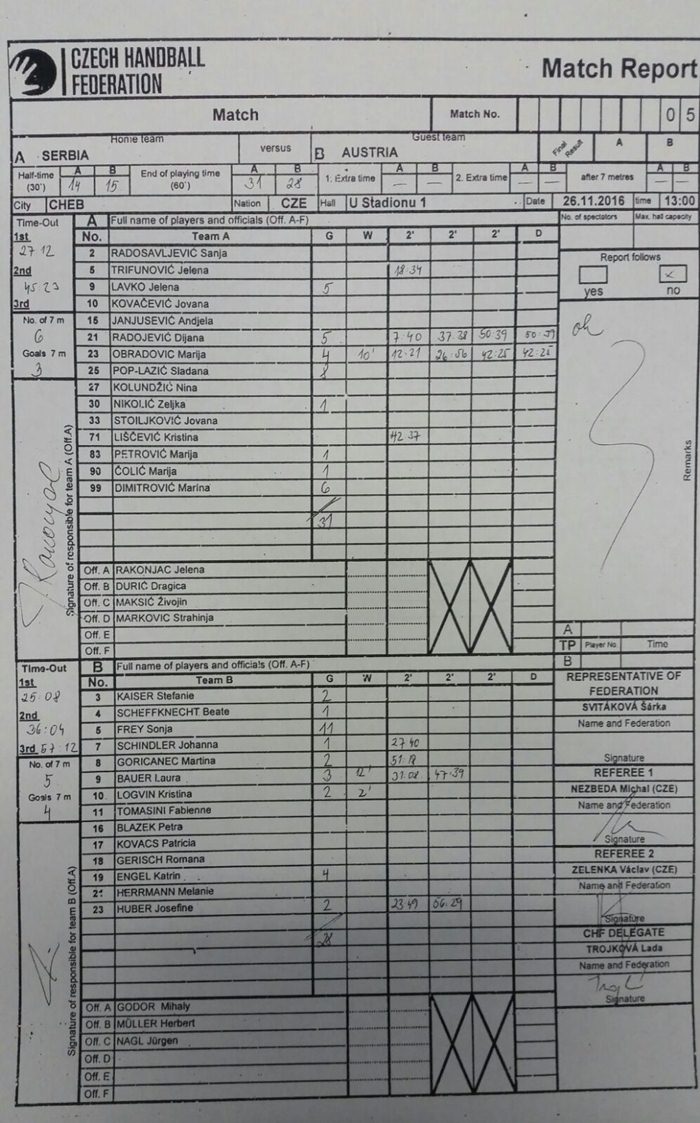 CZECH HANDBALL
FEDERATION
Match Report
Match
Match No.
0 5
Home team
A SERBIA
versus
Guest team
B AUSTRIA
Final Result
A B
Half-time (30') A 14 B 15
End of playing time (60') A 31 B 28
1. Extra time A — B —
2. Extra time A — B —
after 7 metres — —
City CHEB
Nation CZE
Hall U Stadionu 1
Date 26.11.2016 time 13:00
Time-Out
1st
27 12
2nd
45 23
3rd
No. of 7 m
6
Goals 7 m
3
Signature of responsible for team A (Off.A)
A Full name of players and officials (Off. A-F)
No. Team A G W 2' 2' 2' D
2 RADOSAVLJEVIĆ Sanja
5 TRIFUNOVIĆ Jelena 18:34
9 LAVKO Jelena 5
10 KOVAČEVIĆ Jovana
15 JANJUSEVIĆ Andjela
21 RADOJEVIĆ Dijana 5 7:40 37:38 50:39 50:39
23 OBRADOVIC Marija 4 10' 12:21 26:56 42:25 42:25
25 POP-LAZIĆ Sladana 8
27 KOLUNDŽIĆ Nina
30 NIKOLIĆ Zeljka 1
33 STOILJKOVIĆ Jovana
71 LIŠČEVIĆ Kristina 42:37
83 PETROVIĆ Marija 1
90 ČOLIĆ Marija 1
99 DIMITROVIĆ Marina 6
31
Off. A RAKONJAC Jelena
Off. B DURIĆ Dragica
Off. C MAKSIĆ Živojin
Off. D MARKOVIC Strahinja
Off. E
Off. F
No. of spectators
Max. hall capacity
Report follows
yes no
oh
Remarks
A
TP Player No. Time
B
Time-Out
1st
25:08
2nd
36:04
3rd 57:12
No. of 7 m
5
Goals 7 m
4
Signature of responsible for team B (Off.A)
B Full name of players and officials (Off. A-F)
No. Team B G W 2' 2' 2' D
3 KAISER Stefanie 2
4 SCHEFFKNECHT Beate 1
5 FREY Sonja 11
7 SCHINDLER Johanna 1 27:40
8 GORICANEC Martina 2 51:18
9 BAUER Laura 3 12' 31:08 47:39
10 LOGVIN Kristina 2 2'
11 TOMASINI Fabienne
16 BLAZEK Petra
17 KOVACS Patricia
18 GERISCH Romana
19 ENGEL Katrin 4
21 HERRMANN Melanie
23 HUBER Josefine 2 23:49 56:29
28
Off. A GODOR Mihaly
Off. B MÜLLER Herbert
Off. C NAGL Jürgen
Off. D
Off. E
Off. F
REPRESENTATIVE OF
FEDERATION
SVITÁKOVÁ Šárka
Name and Federation
Signature
REFEREE 1
NEZBEDA Michal (CZE)
Name and Federation
Signature
REFEREE 2
ZELENKA Václav (CZE)
Name and Federation
Signature
CHF DELEGATE
TROJKOVÁ Lada
Name and Federation
Signature